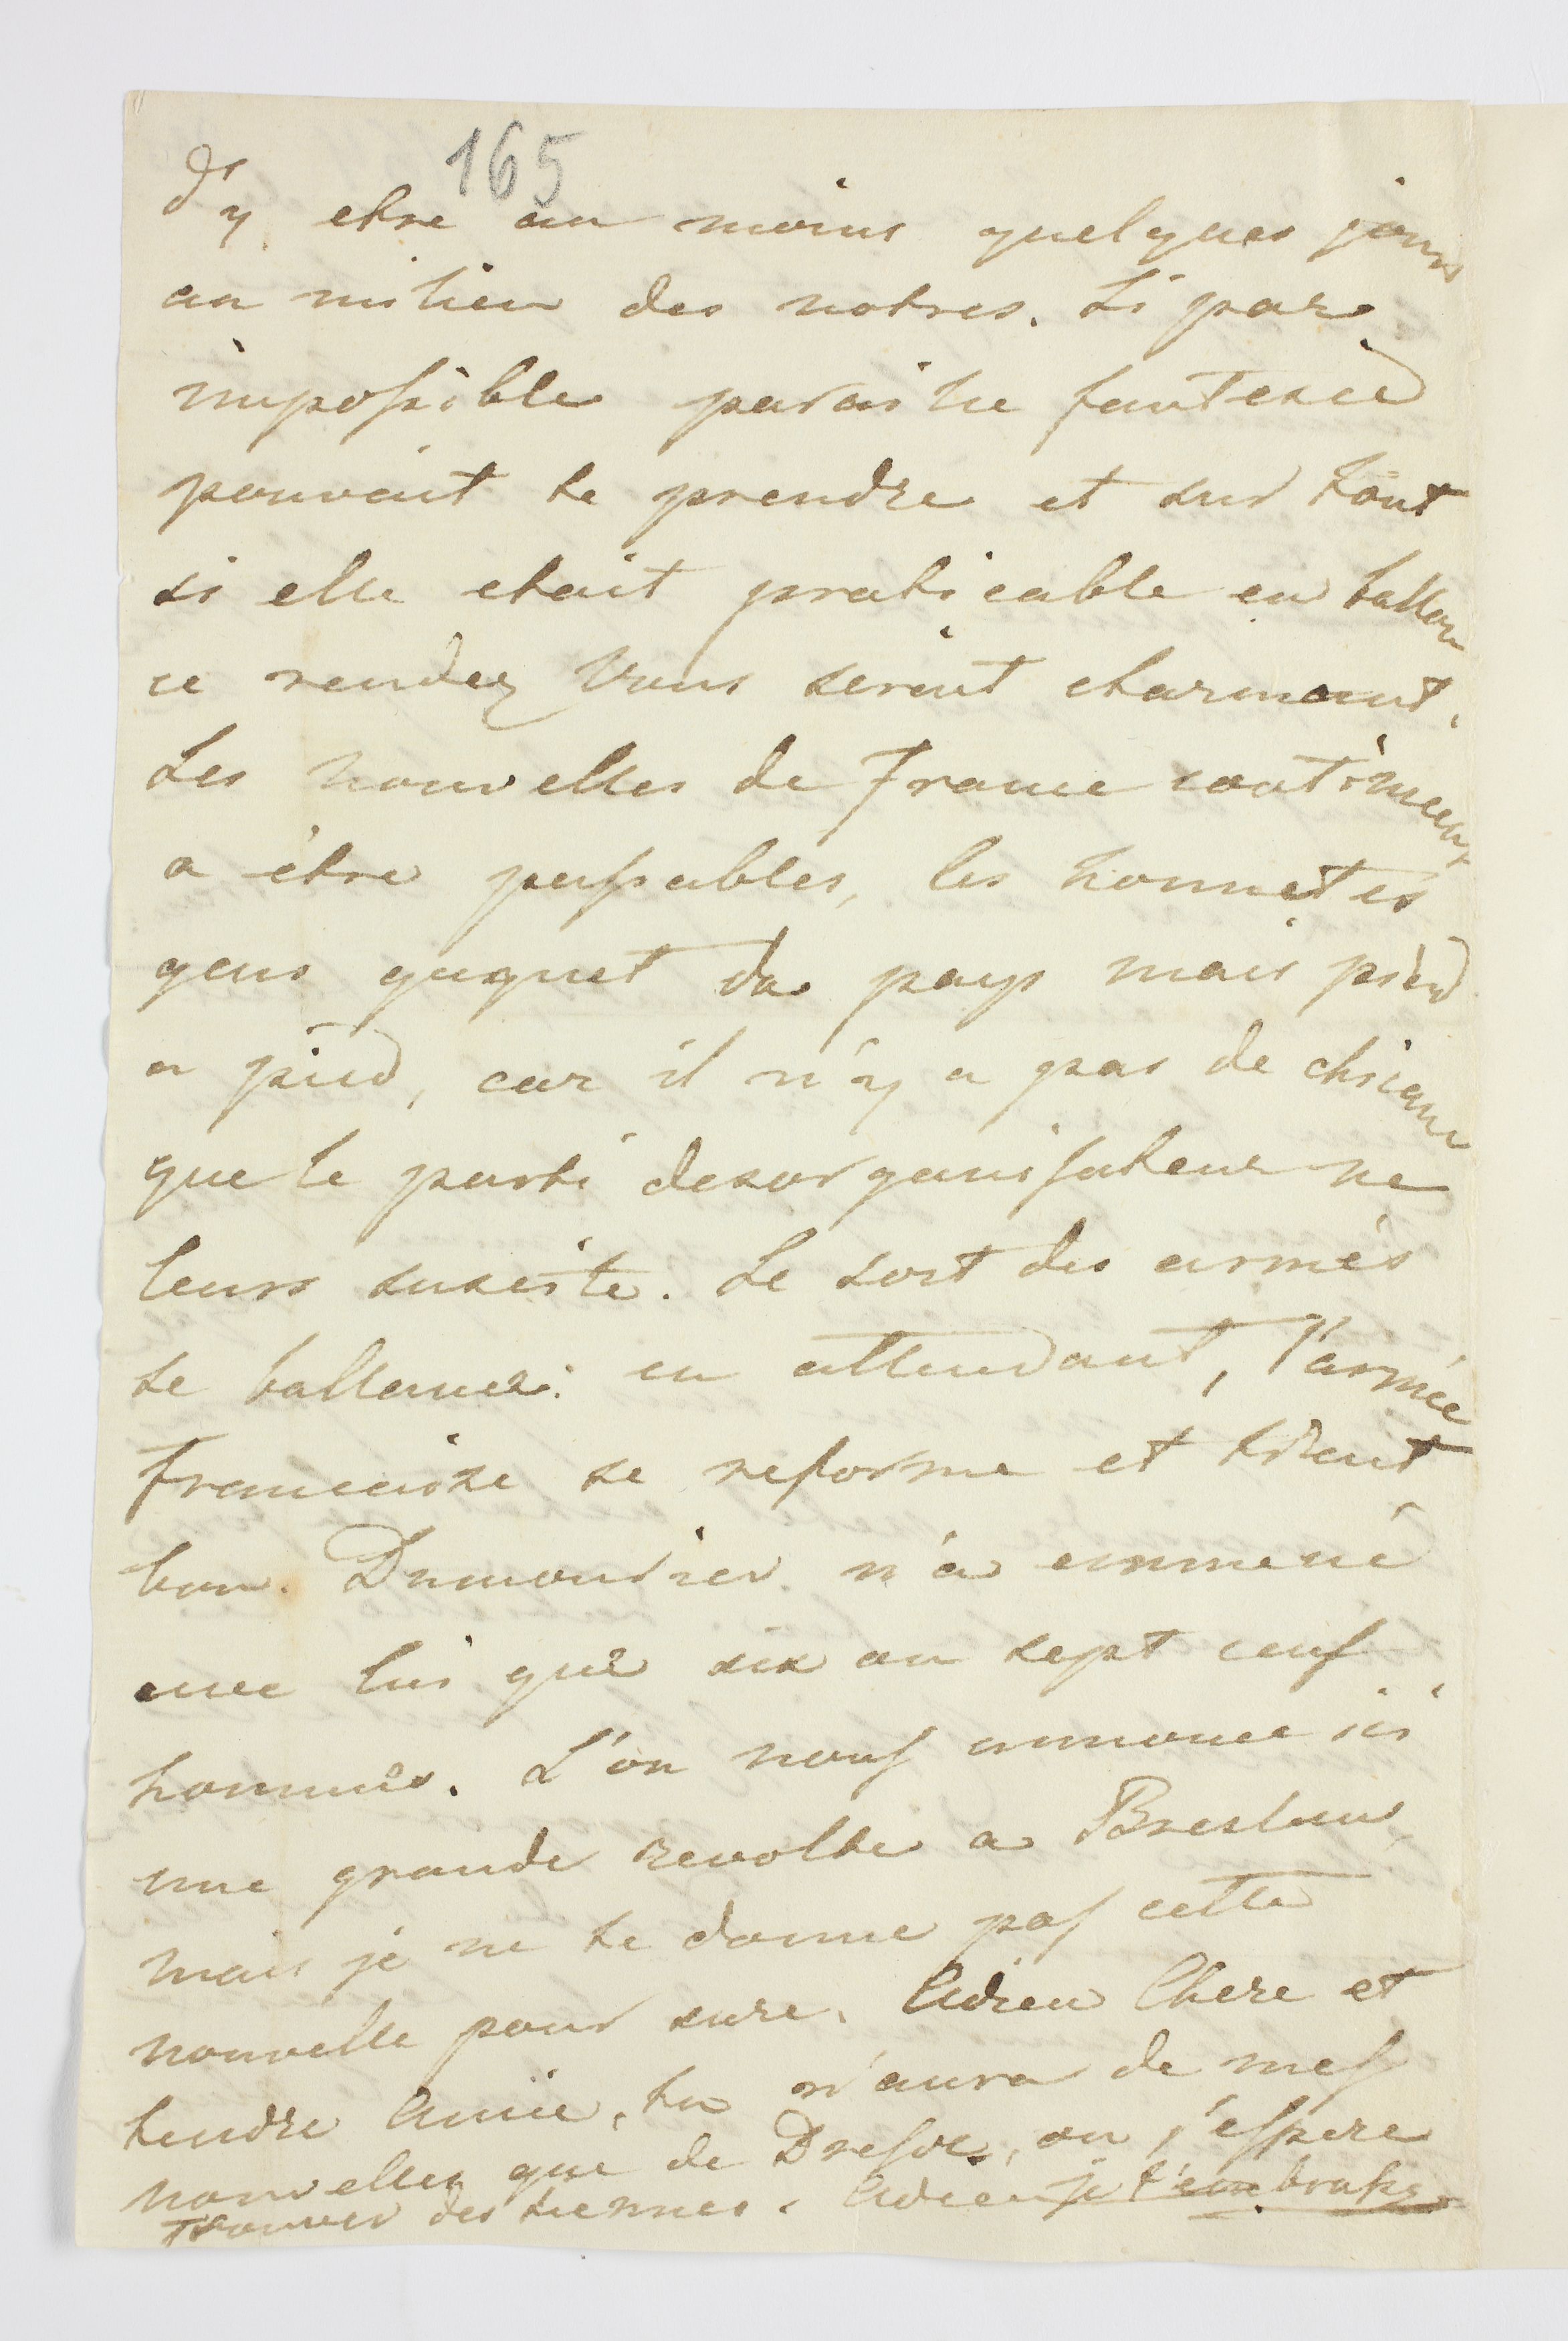 165
d'y etre au moins quelques jours
au milieu des notres. Si par
impossible pareille fantesie
pouvait te prendre et sur tout
si elle etait praticable en ballon
ce rendez vous serait charmant.
Les nouvelles de France continuent
a être passables, les honnetes
gens gagnet du pays mais pied
a pied, car il n'y a pas de chicane
que le parti desorganisateur ne
leurs suseite. Le sort des armés
se ballance: en attendant, l'armée
francaise se reforme et tient
bon. Dumourier n'a emmené
avec lui que six ou sept cent
hommes. L'on nous annonce ici
une grande revolte a Breslau,
mais je ne te donne pas cette
nouvelle pour sure. Adieu Chere et
tendre Amie, tu n'aura de mes
nouvelles que de Dresde, ou j'espere
trouver des tiennes. Adieu je t'embrasse